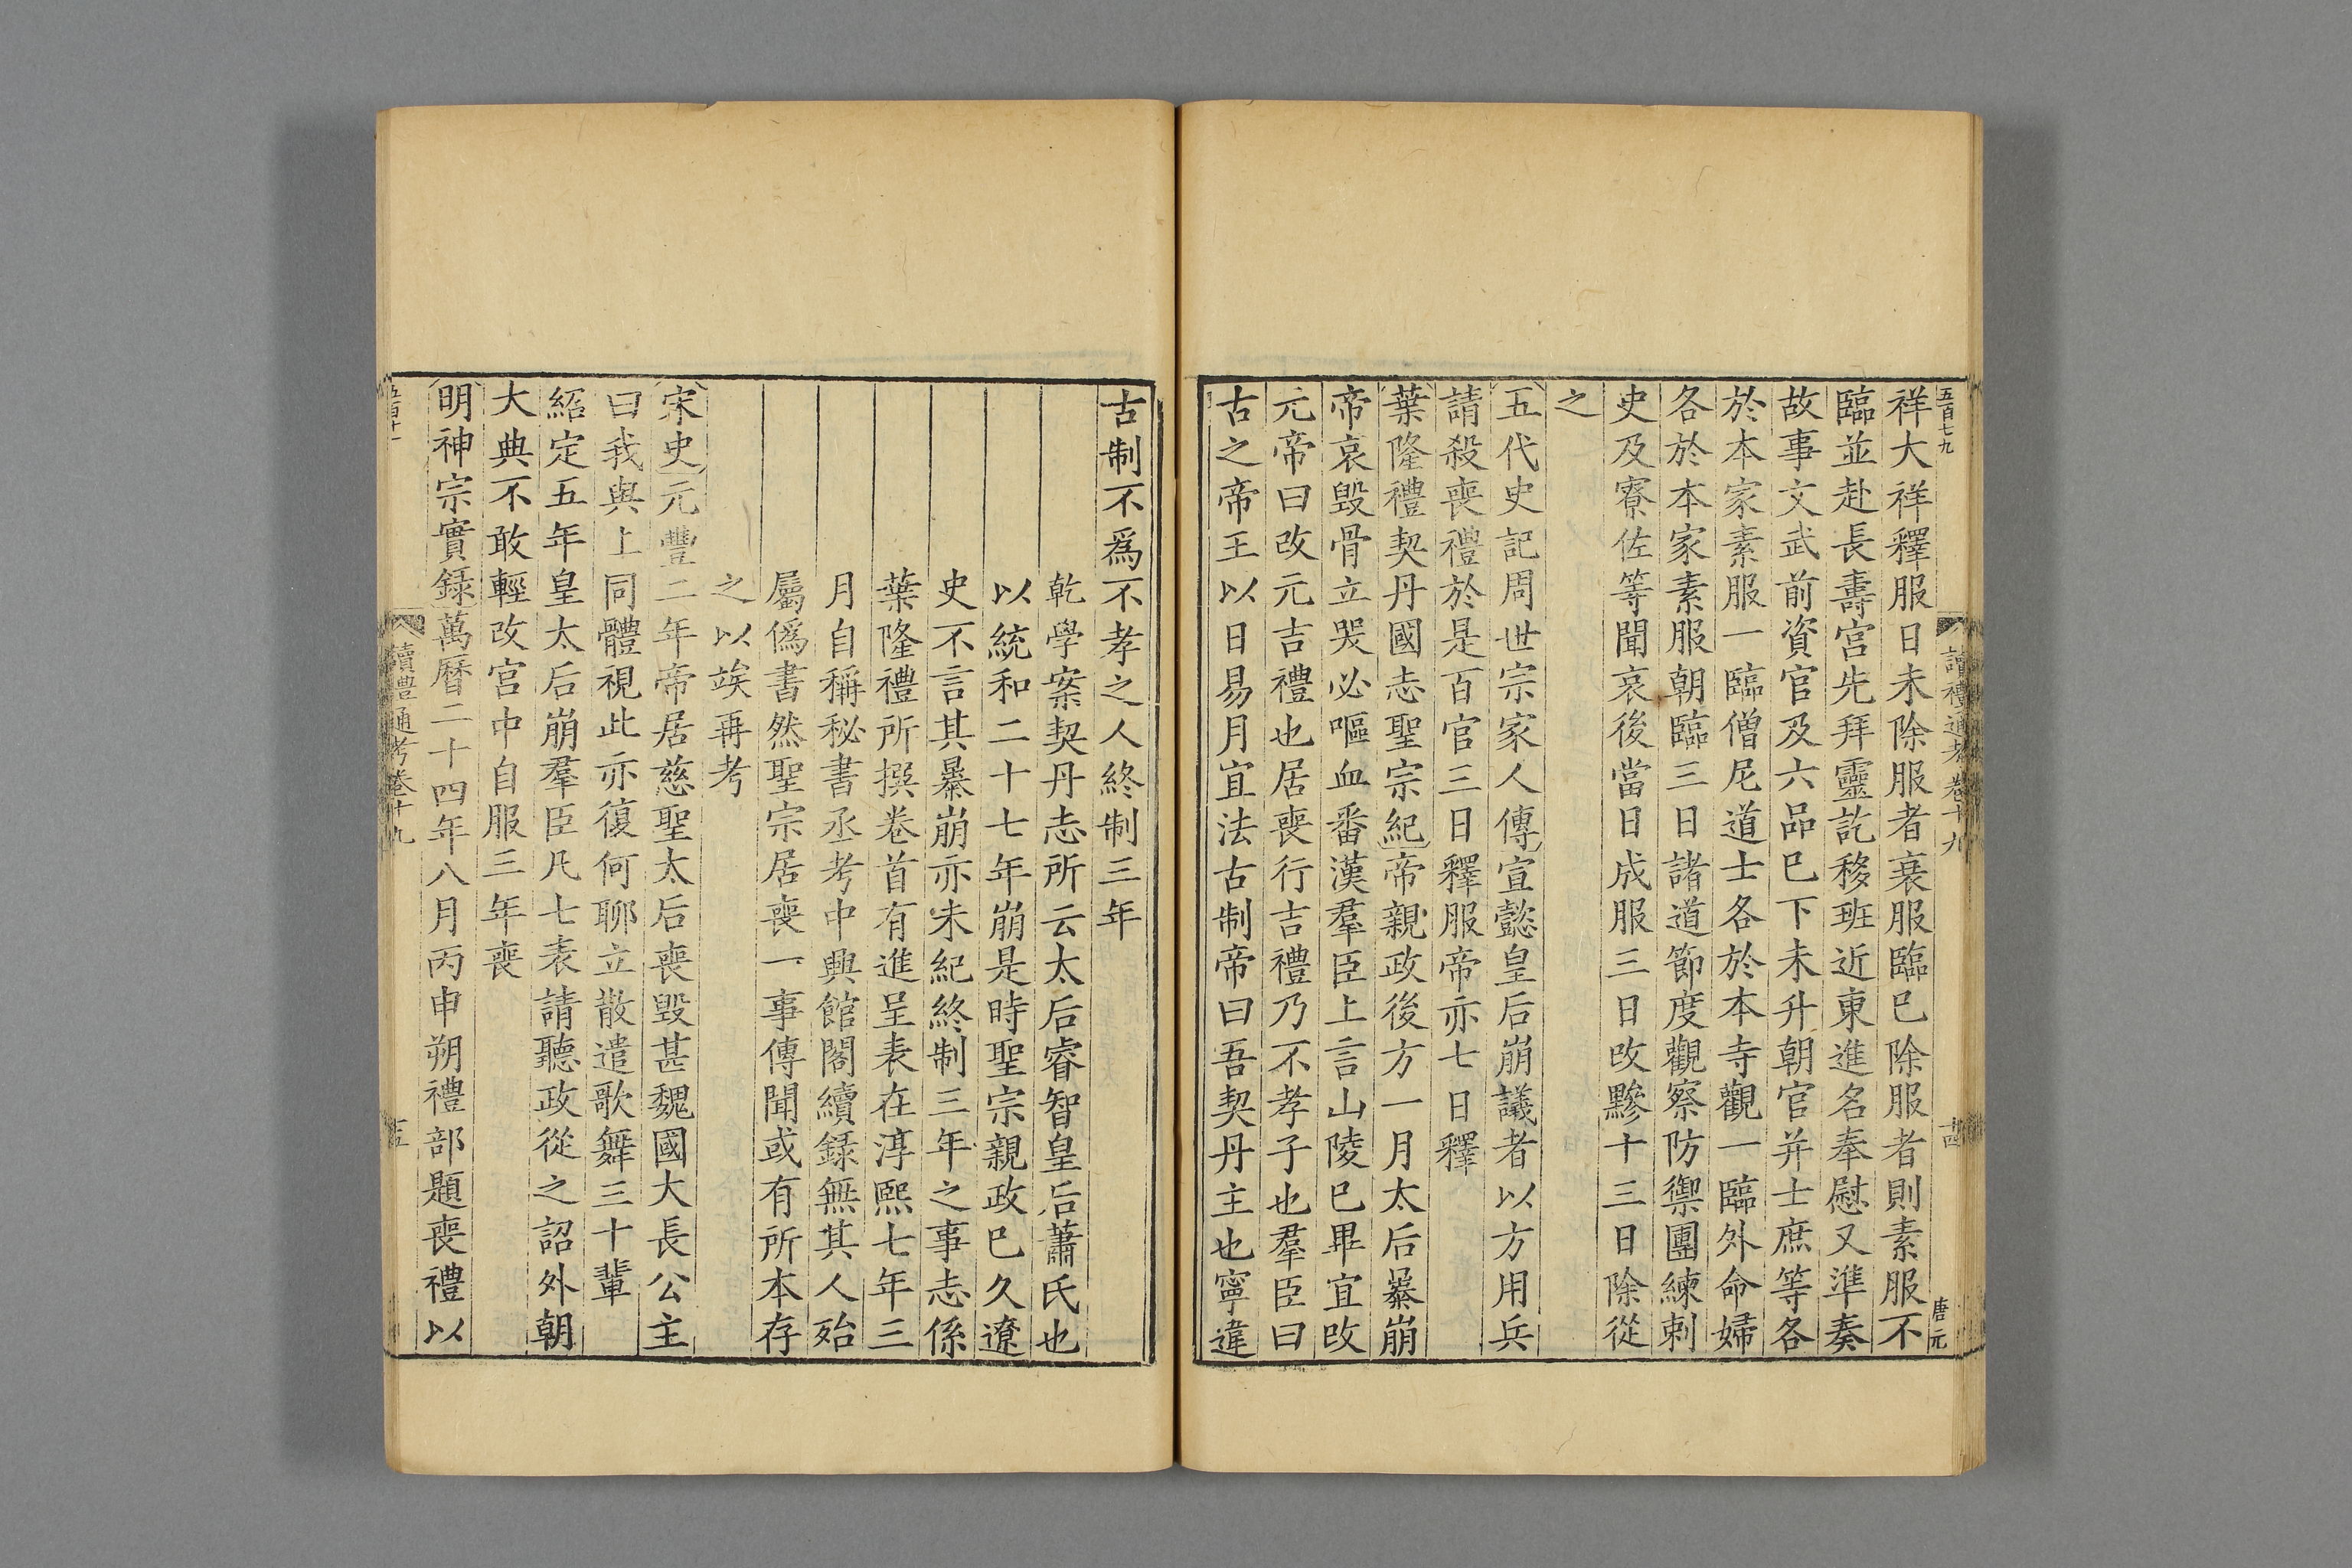 五百七九
讀禮通考卷十九
十四
唐元
祥大祥釋服日未除服者衰服臨巳除服者則素服不
臨並赴長壽宮先拜靈訖移班近東進名奉慰又準奏
故事文武前資官及六品巳下未升朝官并士庶等各
於本家素服一臨僧尼道士各於本寺觀一臨外命婦
各於本家素服朝臨三日諸道節度觀察防禦團練刺
史及寮佐等聞哀後當日成服三日改黲十三日除從
之
五代史記周世宗家人傳宣懿皇后崩議者以方用兵
請殺喪禮於是百官三日釋服帝亦七日釋
葉隆禮契丹國志聖宗紀帝親政後方一月太后暴崩
帝哀毀骨立哭必嘔血番漢羣臣上言山陵巳畢宜改
元帝曰改元吉禮也居喪行吉禮乃不孝子也羣臣曰
古之帝王以日易月宜法古制帝曰吾契丹主也寧違
古制不爲不孝之人終制三年
乾學案契丹志所云太后睿智皇后蕭氏也
以統和二十七年崩是時聖宗親政巳久遼
史不言其暴崩亦未紀終制三年之事志係
葉隆禮所撰卷首有進呈表在淳熙七年三
月自稱秘書丞考中興館閣續錄無其人殆
屬僞書然聖宗居喪一事傳聞或有所本存
之以竢再考
宋史元豐二年帝居慈聖太后喪毀甚魏國大長公主
曰我與上同體視此亦復何聊立散遣歌舞三十輩
紹定五年皇太后崩羣臣凡七表請聽政從之詔外朝
大典不敢輕改宮中自服三年喪
明神宗實錄萬曆二十四年八月丙申朔禮部題喪禮以
五百十一
讀禮通考卷十九
十五